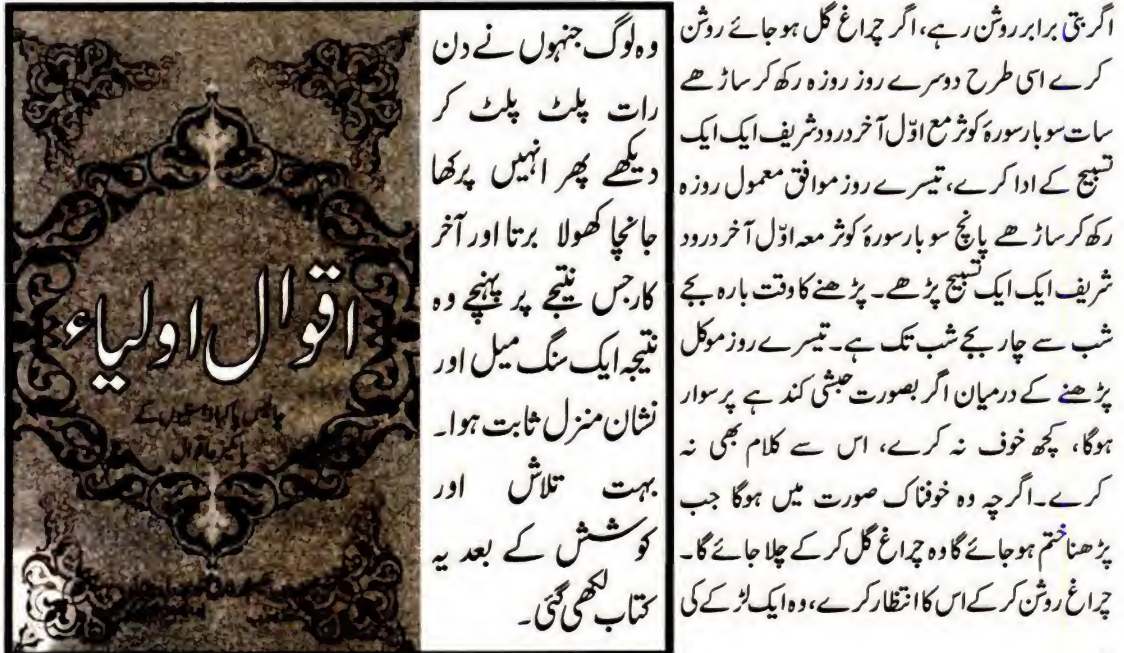 اگر بتی برابر روشن رہے، اگر چراغ گل ہو جائے روشن
کرے اسی طرح دوسرے روز روزہ رکھ کر ساڑھے
سات سو بار سورۂ کوثر مع اوّل آخر درود شریف ایک ایک
تسبیح کے ادا کرے، تیسرے روز موافق معمول روزہ
رکھ کر ساڑھے پانچ سو بار سورۂ کوثر معہ اوّل آخر درود
شریف ایک ایک تسبیح پڑھے۔ پڑھنے کا وقت بارہ بجے
شب سے چار بجے شب تک ہے۔ تیسرے روز موکل
پڑھنے کے درمیان اگر بصورت حبشی کند ہے پر سوار
ہوگا، کچھ خوف نہ کرے، اس سے کلام بھی نہ
کرے۔ اگر چہ وہ خوفناک صورت میں ہوگا جب
پڑھنا ختم ہو جائے گا وہ چراغ گل کر کے چلا جائے گا۔
چراغ روشن کر کے اس کا انتظار کرے، وہ ایک لڑکے کی
وہ لوگ جنہوں نے دن
رات پلٹ پلٹ کر
دیکھے پھر انہیں پرکھا
جانچا کھولا برتا اور آخر
کار جس نتیجے پر پہنچے وہ
نتیجہ ایک سنگ میل اور
نشان منزل ثابت ہوا۔
بہت تلاش اور
کوشش کے بعد یہ
کتاب لکھی گئی۔
اقوال اولیاء